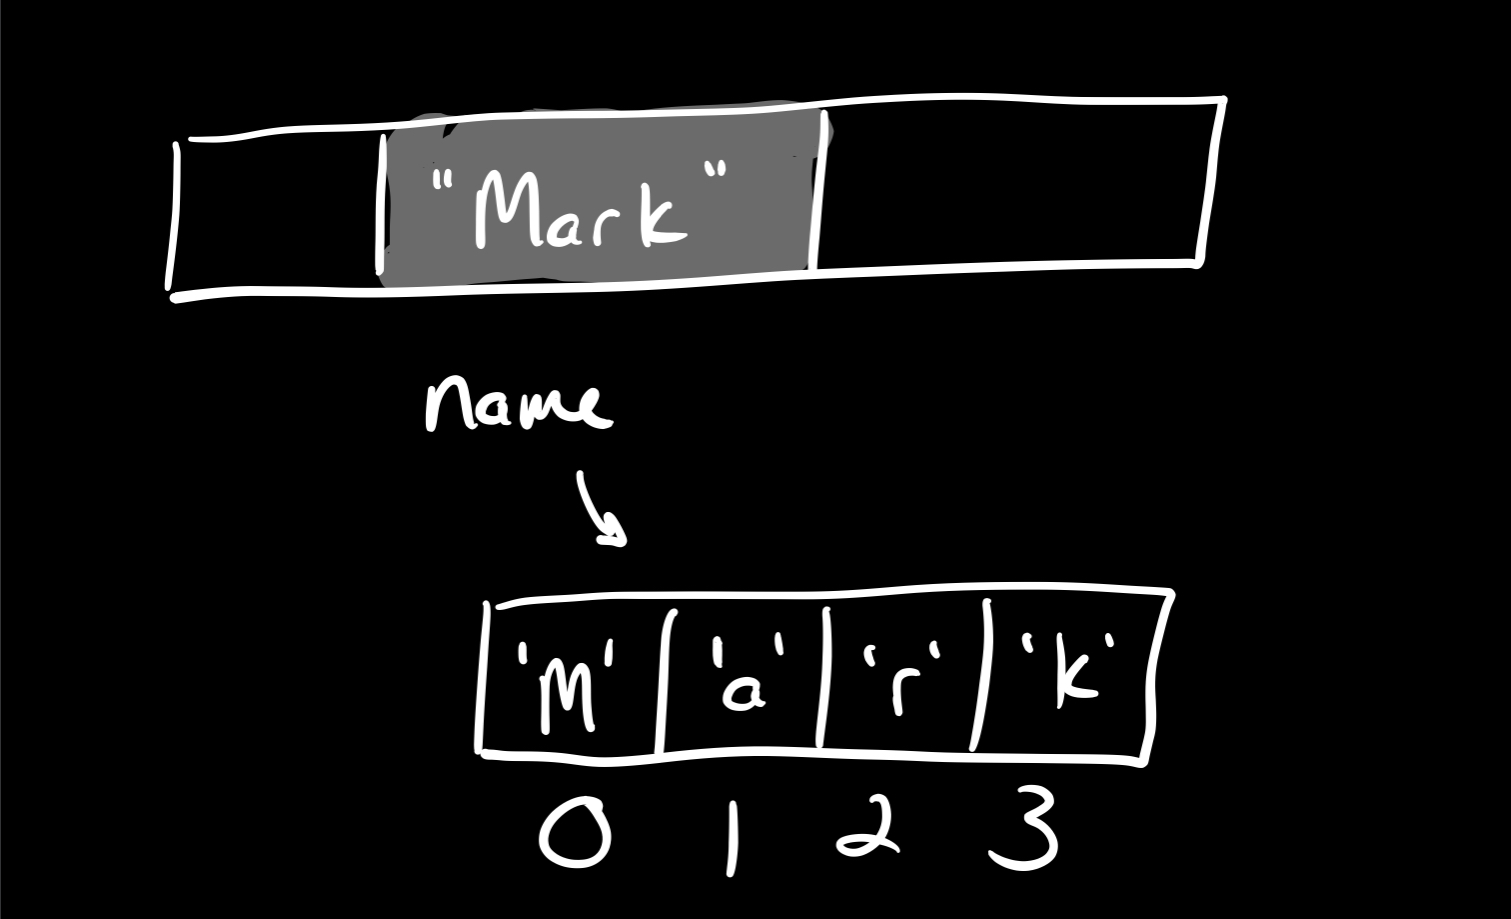 "Mark"
name
'M' 'a' 'r' 'k'
0 1 2 3